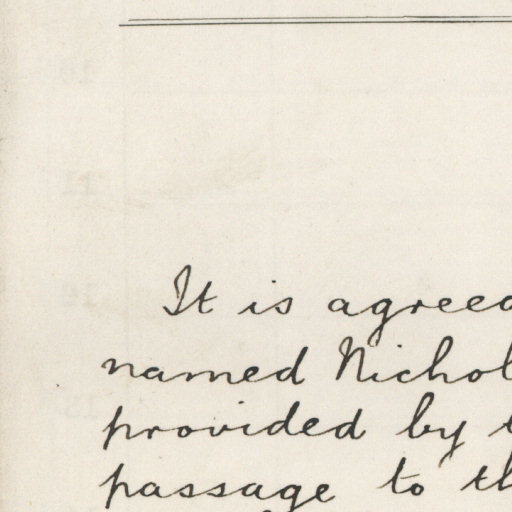 It is agreed
named Nichol
provided by t
passage to th